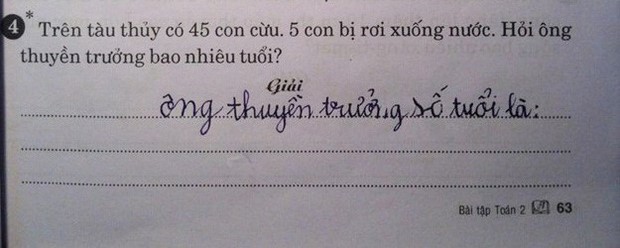 4* Trên tàu thủy có 45 con cừu. 5 con bị rơi xuống nước. Hỏi ông
thuyền trưởng bao nhiêu tuổi?
Giải
ông thuyền trưởng số tuổi là:
Bài tập Toán 2 63